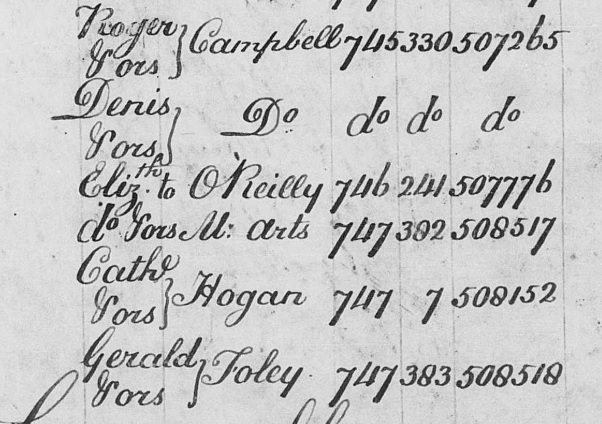 Roger
&ors } Campbell 745 330 507265
Denis
&ors } Do do do do
Eliz.th to O'Reilly 746 241 507776
do &ors M: arts 747 382 508517
Cathe
&ors } Hogan 747 7 508152
Gerald
&ors } Foley 747 383 508518